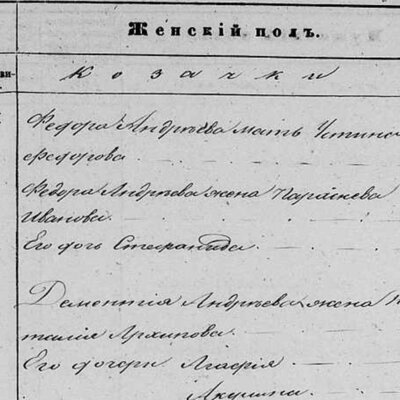 Женскій полъ.
ви-
Козачки
Федора Андрѣева мать Устинья
Федорова
Федора Андрѣева жена
Иванова
Его дочь Стефанида
Дементія Андрѣева жена На
талія Архипова
Его дочери Агафія
Акулина